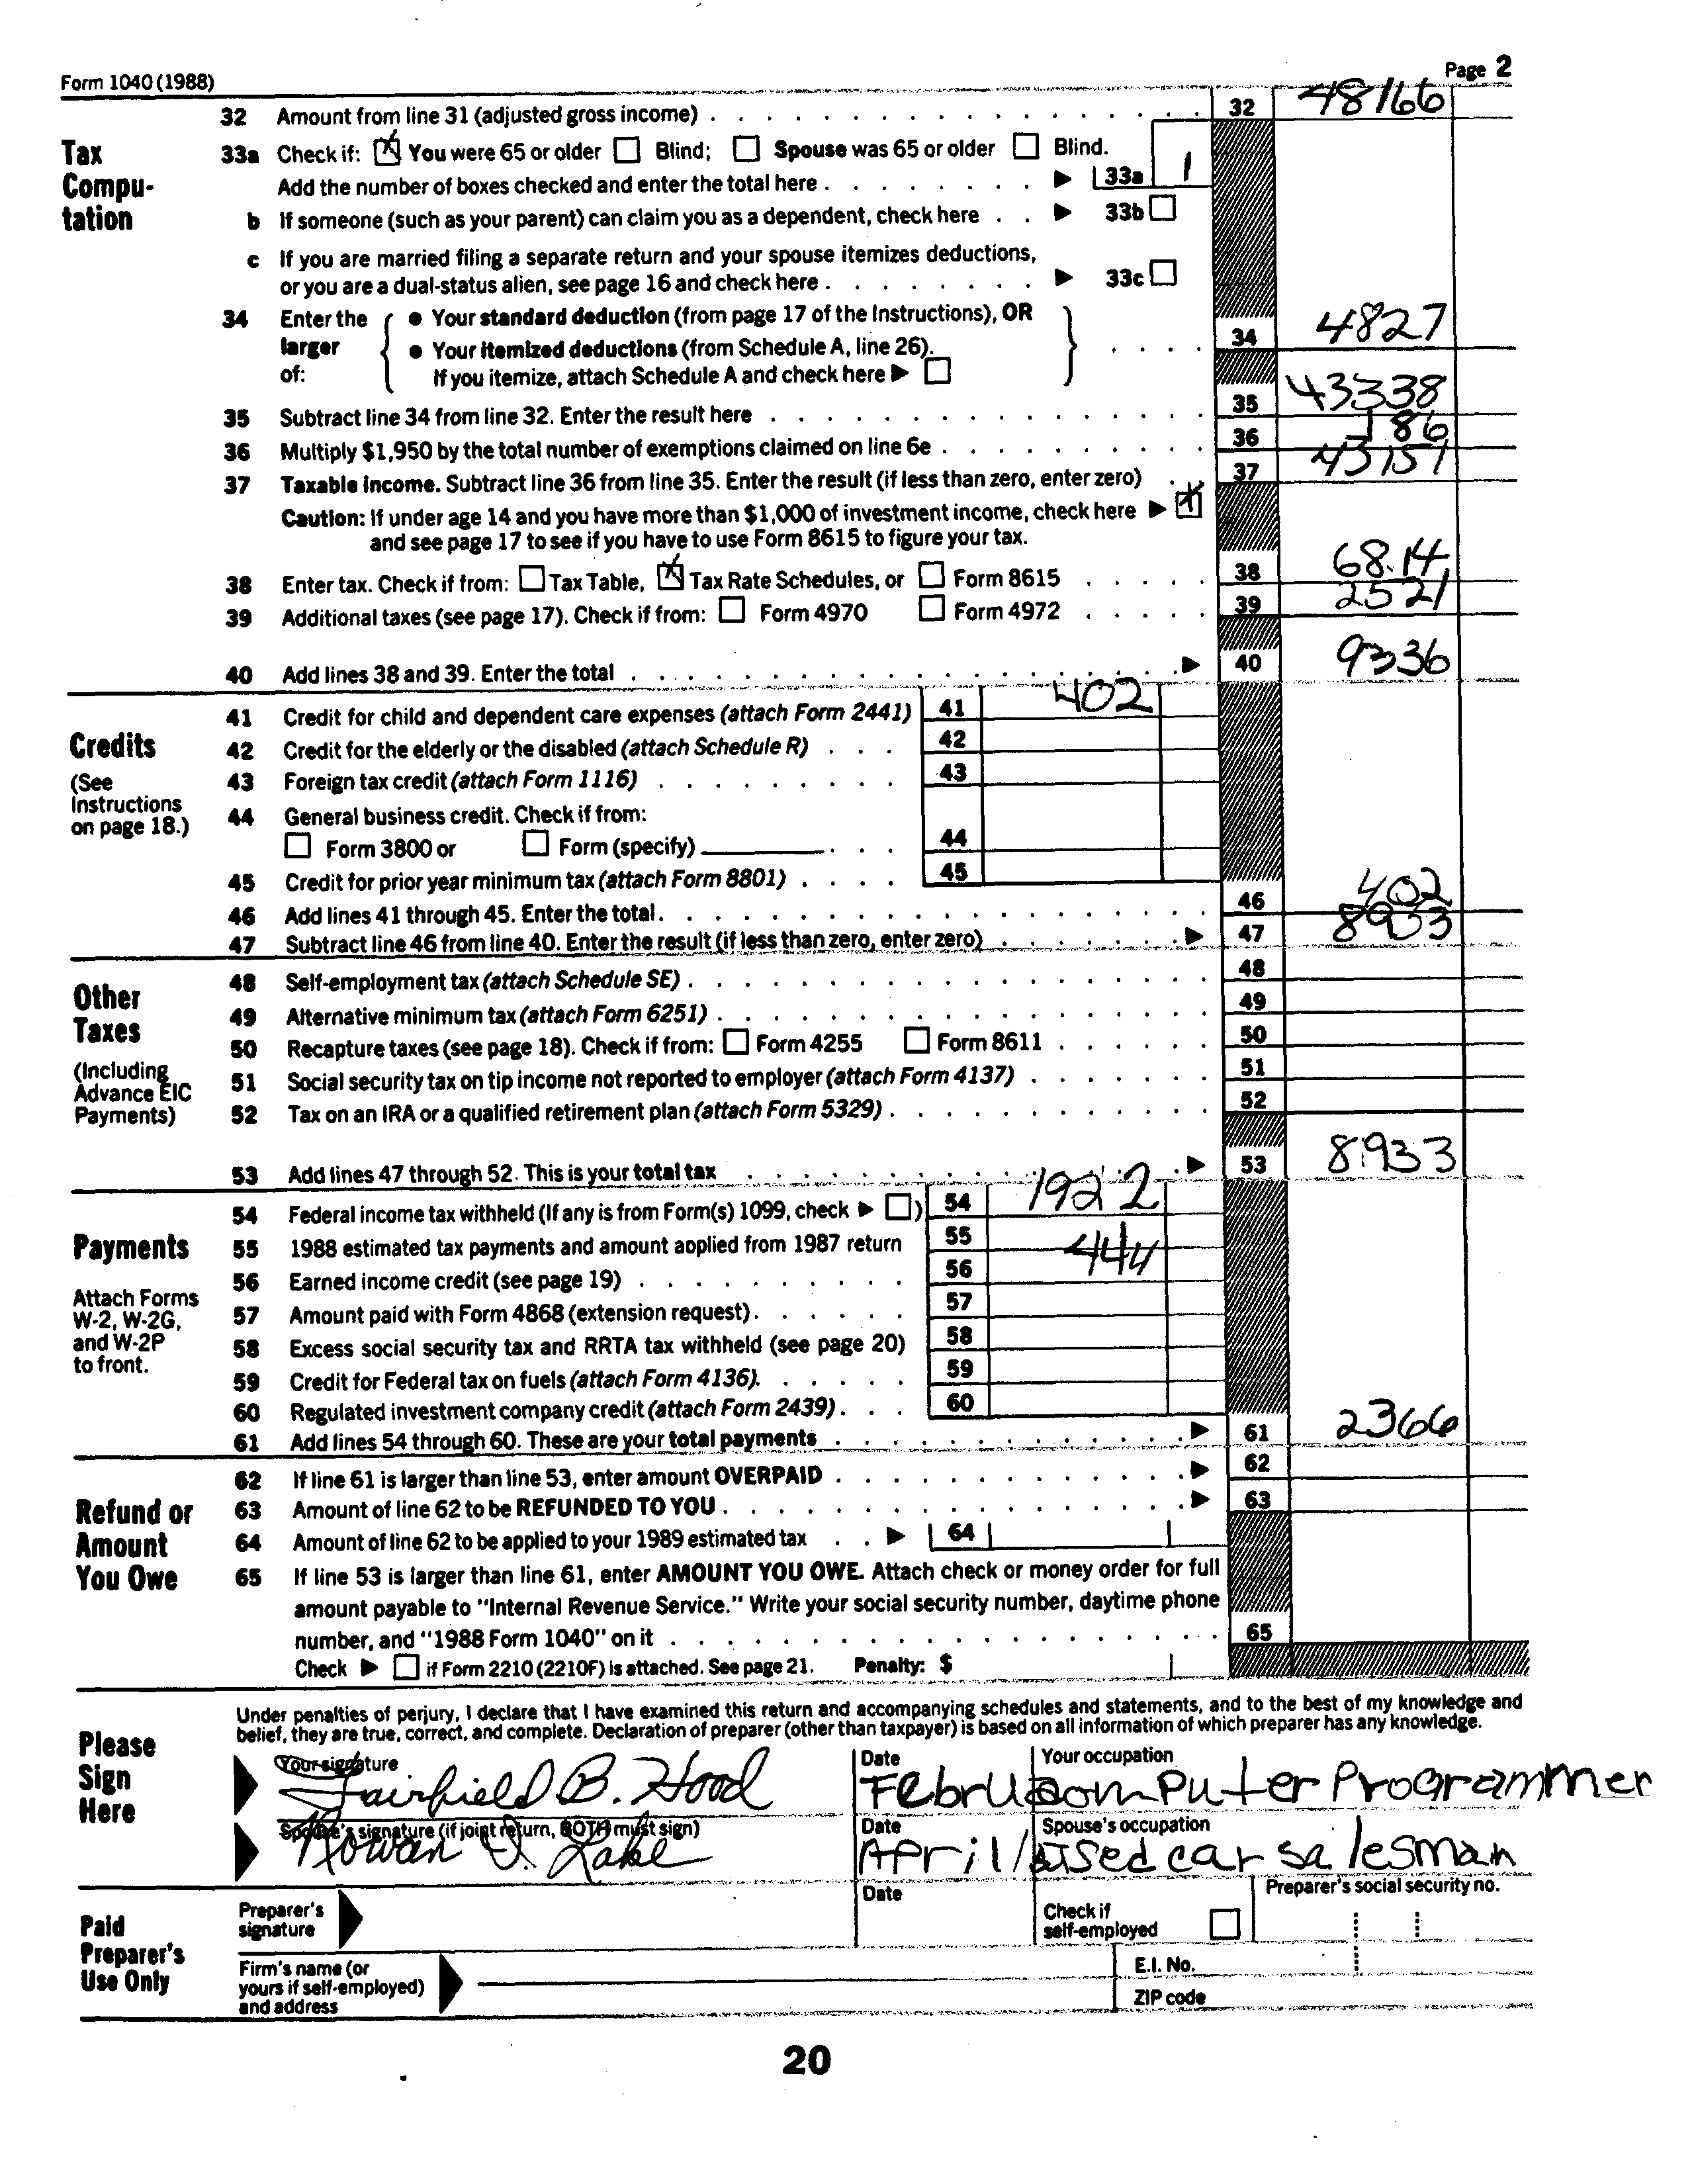 Form 1040 (1988) Page 2
Tax Compu-tation
32 Amount from line 31 (adjusted gross income) 32 48166
33a Check if: You were 65 or older Blind; Spouse was 65 or older Blind.
Add the number of boxes checked and enter the total here 33a 1
b If someone (such as your parent) can claim you as a dependent, check here 33b
c If you are married filing a separate return and your spouse itemizes deductions,
or you are a dual-status alien, see page 16 and check here 33c
34 Enter the larger of:
• Your standard deduction (from page 17 of the Instructions), OR
• Your itemized deductions (from Schedule A, line 26).
If you itemize, attach Schedule A and check here
34 4827
35 Subtract line 34 from line 32. Enter the result here 35 43338
36 Multiply $1,950 by the total number of exemptions claimed on line 6e 36 186
37 Taxable Income. Subtract line 36 from line 35. Enter the result (if less than zero, enter zero) 37 43151
Caution: If under age 14 and you have more than $1,000 of investment income, check here
and see page 17 to see if you have to use Form 8615 to figure your tax.
38 Enter tax. Check if from: Tax Table, Tax Rate Schedules, or Form 8615 38 68.14
39 Additional taxes (see page 17). Check if from: Form 4970 Form 4972 39 2521
40 Add lines 38 and 39. Enter the total 40 9336
Credits
(See Instructions on page 18.)
41 Credit for child and dependent care expenses (attach Form 2441) 41 402
42 Credit for the elderly or the disabled (attach Schedule R) 42
43 Foreign tax credit (attach Form 1116) 43
44 General business credit. Check if from:
Form 3800 or Form (specify) 44
45 Credit for prior year minimum tax (attach Form 8801) 45
46 Add lines 41 through 45. Enter the total 46 402
47 Subtract line 46 from line 40. Enter the result (if less than zero, enter zero) 47 8933
Other Taxes
(Including Advance EIC Payments)
48 Self-employment tax (attach Schedule SE) 48
49 Alternative minimum tax (attach Form 6251) 49
50 Recapture taxes (see page 18). Check if from: Form 4255 Form 8611 50
51 Social security tax on tip income not reported to employer (attach Form 4137) 51
52 Tax on an IRA or a qualified retirement plan (attach Form 5329) 52
53 Add lines 47 through 52. This is your total tax 53 8933
Payments
Attach Forms W-2, W-2G, and W-2P to front.
54 Federal income tax withheld (If any is from Form(s) 1099, check ) 54 1922
55 1988 estimated tax payments and amount applied from 1987 return 55 444
56 Earned income credit (see page 19) 56
57 Amount paid with Form 4868 (extension request) 57
58 Excess social security tax and RRTA tax withheld (see page 20) 58
59 Credit for Federal tax on fuels (attach Form 4136). 59
60 Regulated investment company credit (attach Form 2439) 60
61 Add lines 54 through 60. These are your total payments 61 2366
Refund or Amount You Owe
62 If line 61 is larger than line 53, enter amount OVERPAID 62
63 Amount of line 62 to be REFUNDED TO YOU 63
64 Amount of line 62 to be applied to your 1989 estimated tax 64
65 If line 53 is larger than line 61, enter AMOUNT YOU OWE. Attach check or money order for full
amount payable to "Internal Revenue Service." Write your social security number, daytime phone
number, and "1988 Form 1040" on it 65
Check if Form 2210 (2210F) is attached. See page 21. Penalty: $
Please Sign Here
Under penalties of perjury, I declare that I have examined this return and accompanying schedules and statements, and to the best of my knowledge and
belief, they are true, correct, and complete. Declaration of preparer (other than taxpayer) is based on all information of which preparer has any knowledge.
Your signature Date Your occupation
Fairfield B. Hood Computer Programmer
Spouse's signature (if joint return, BOTH must sign) Date Spouse's occupation
Rowan D. Lake April Used car salesman
Paid Preparer's Use Only
Preparer's signature Date Check if self-employed Preparer's social security no.
Firm's name (or yours if self-employed) and address
E.I. No.
ZIP code
20